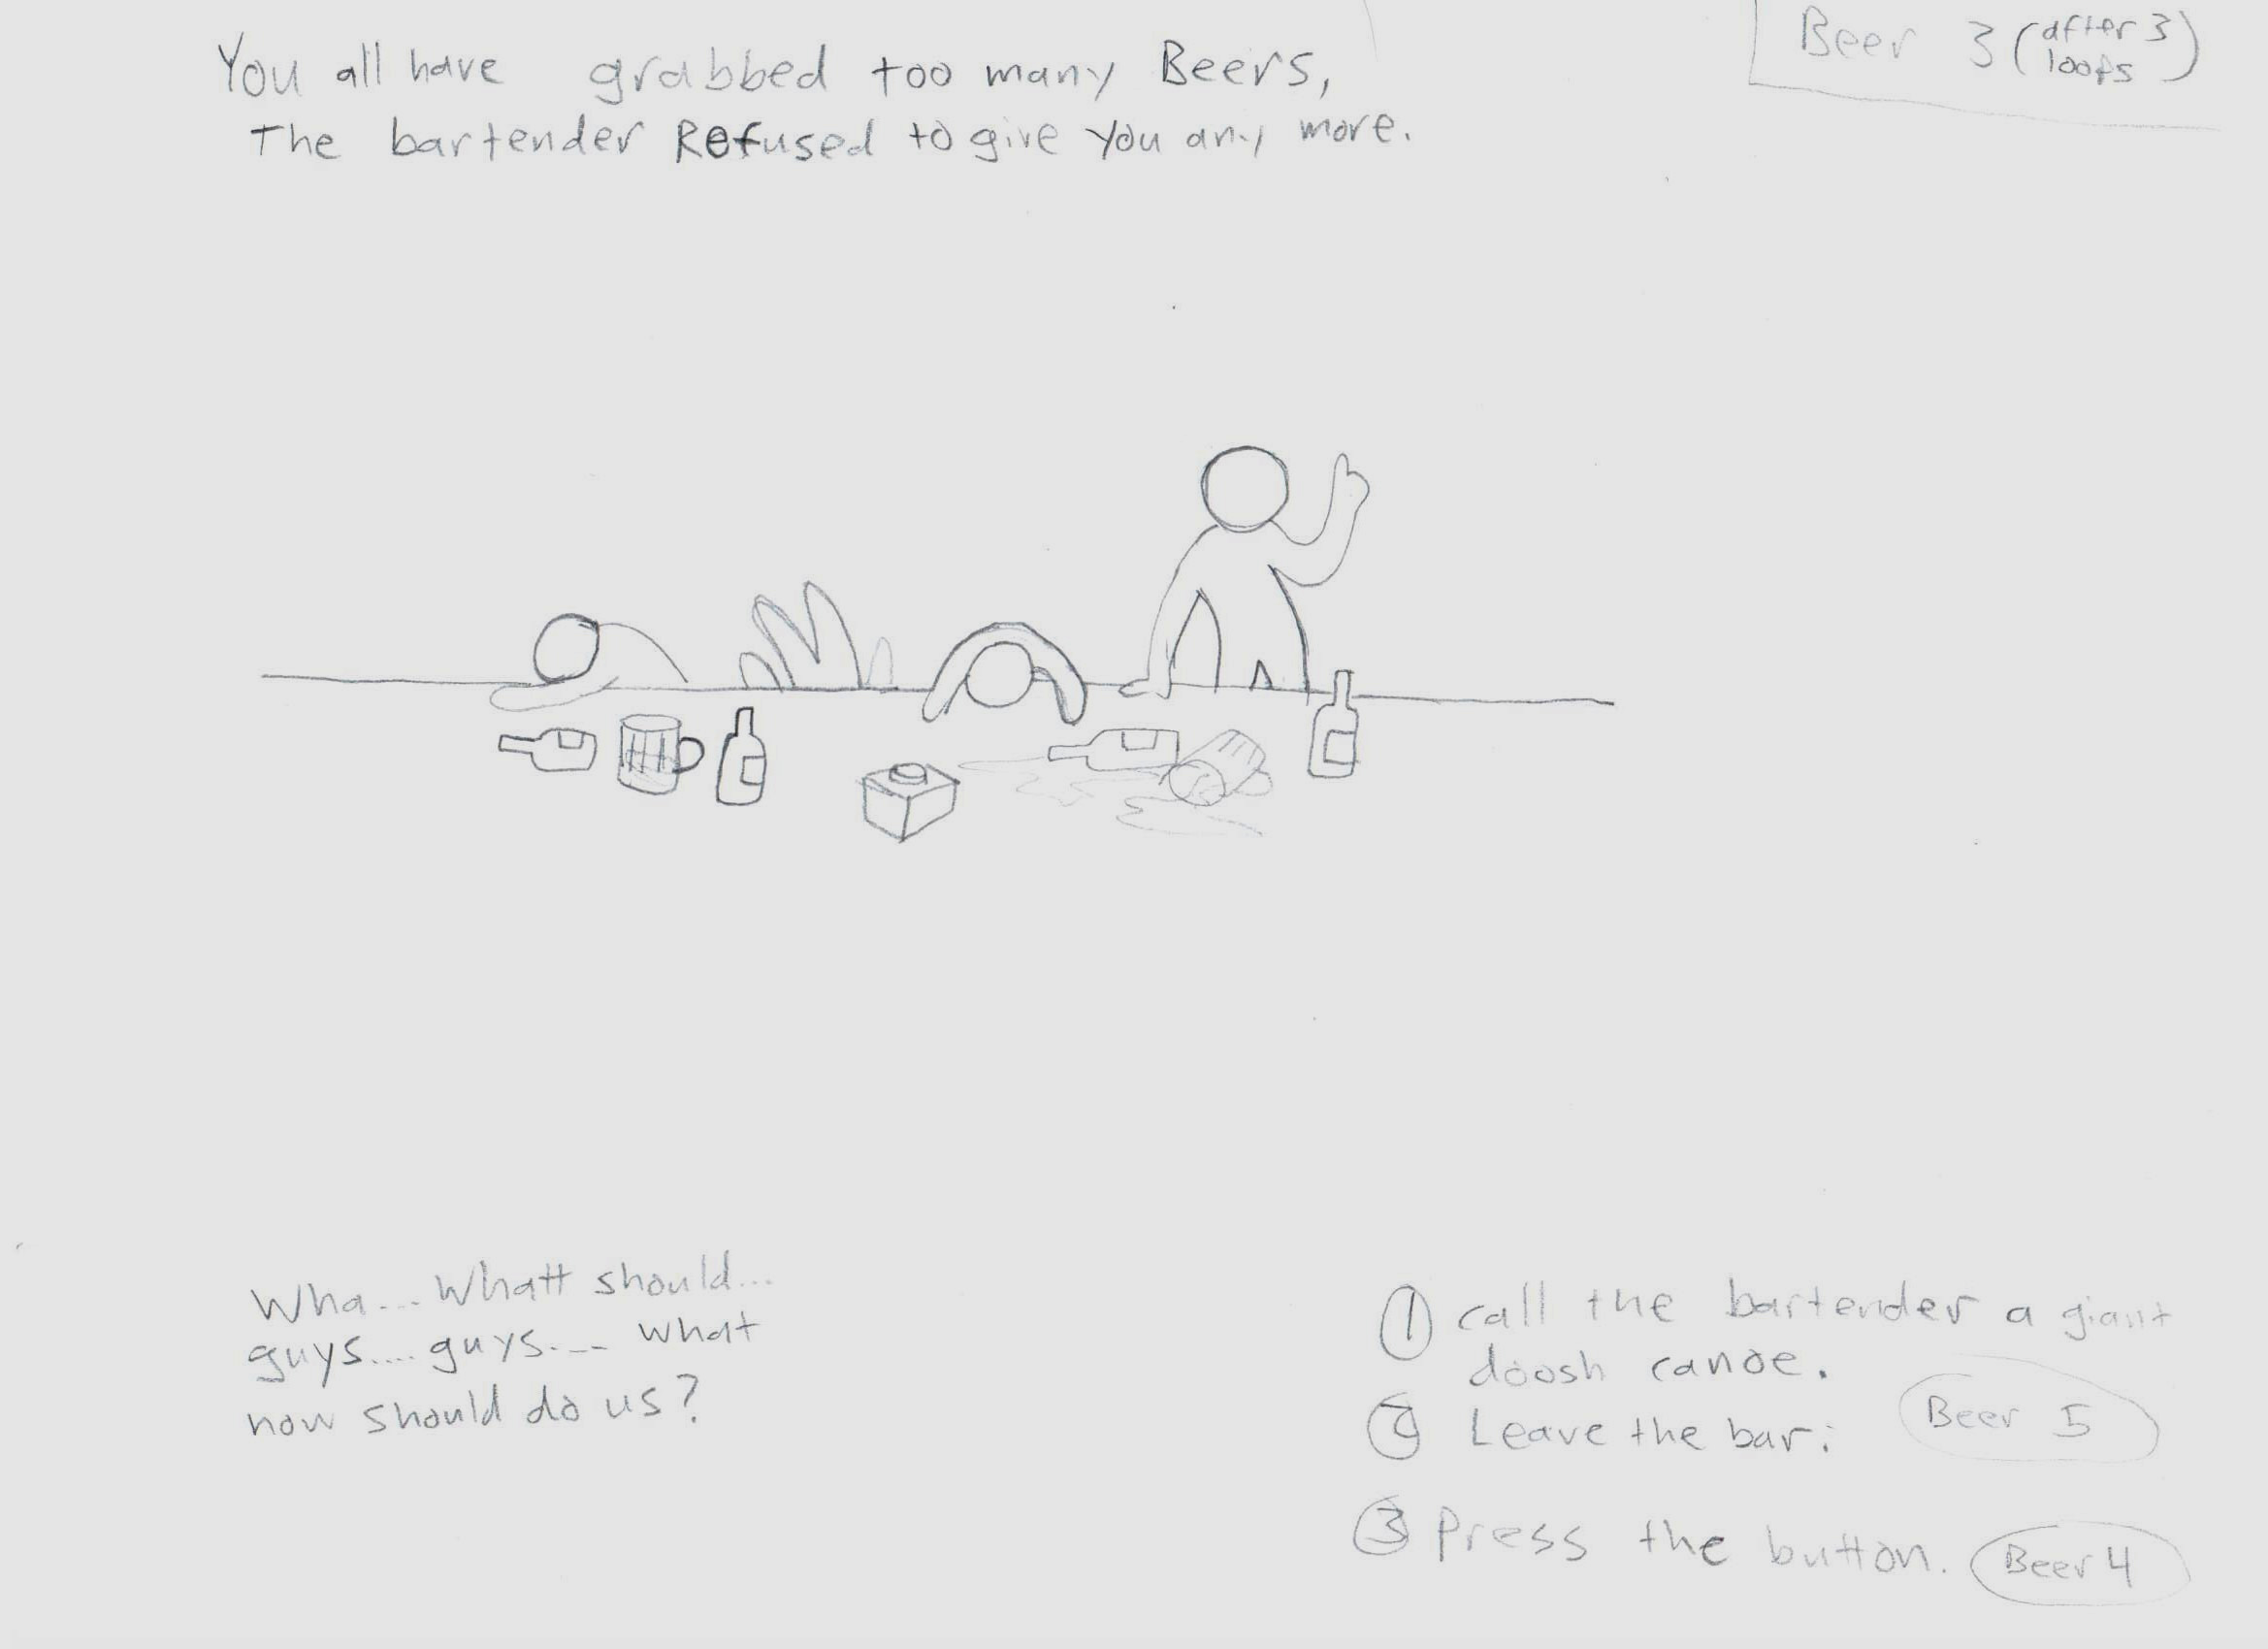 You all have grabbed too many Beers,
The bartender Refused to give you any more.
Beer 3 (after 3
loops)
Wha... Whatt should...
guys.... guys.... what
now should do us?
① call the bartender a giant
doosh canoe.
② Leave the bar.
Beer 5
③ Press the button. Beer 4